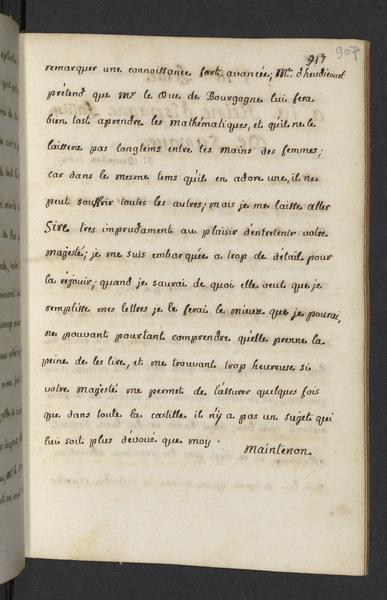 917 907
remarquer une connoissance fort avancée; Mme d'heudicourt
prétend que Mr le Duc de Bourgogne lui fera
bien tost aprendre les mathématiques, et qu'il ne le
laissera pas longtems entre les mains des femmes;
car dans le mesme tems qu'il en adore une, il ne
peut souffrir toutes les autres; mais je me laisse aller
Sire tres imprudament au plaisir d'entretenir votre
majesté; je me suis embarquée a trop de détail pour
la réjouir; quand je saurai de quoi elle veut que je
remplisse mes lettres je le ferai le mieux que je pourai,
ne pouvant pourtant comprendre qu'elle prenne la
peine de les lire, et me trouvant trop heureuse si
votre majesté me permet de l'assurer quelques fois
que dans toute la castille il n'y a pas un sujet qui
lui soit plus dévoué que moy.
Maintenon